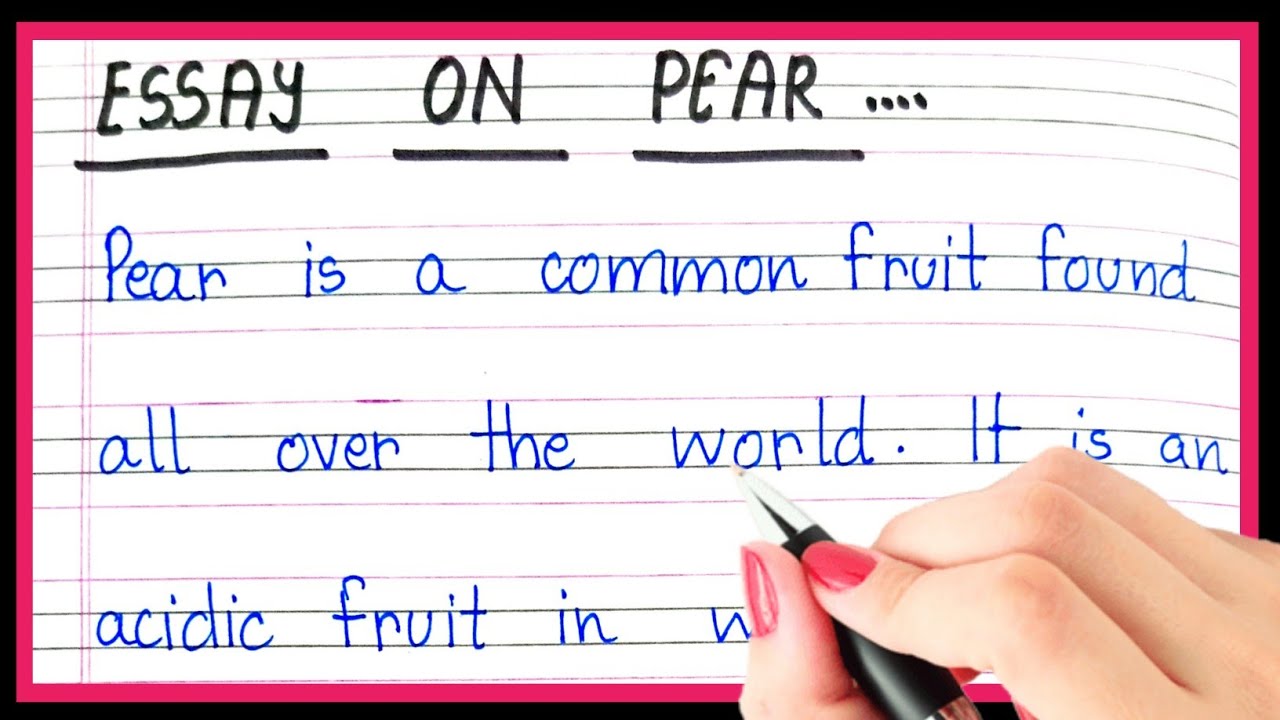 ESSAY ON PEAR ....
Pear is a common fruit found
all over the world. It is an
acidic fruit in